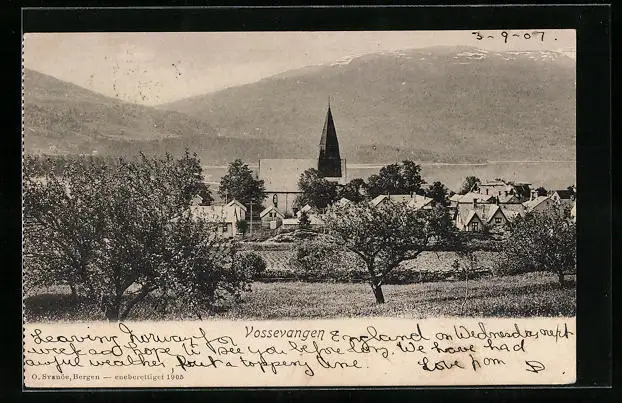 3-9-07.
Leaving Norway for Vossevangen England on Wednesday next
week and hope to see you before long, We have had
awful weather, but a topping time. Love from
O. Svanöe, Bergen — eneberettiget 1905